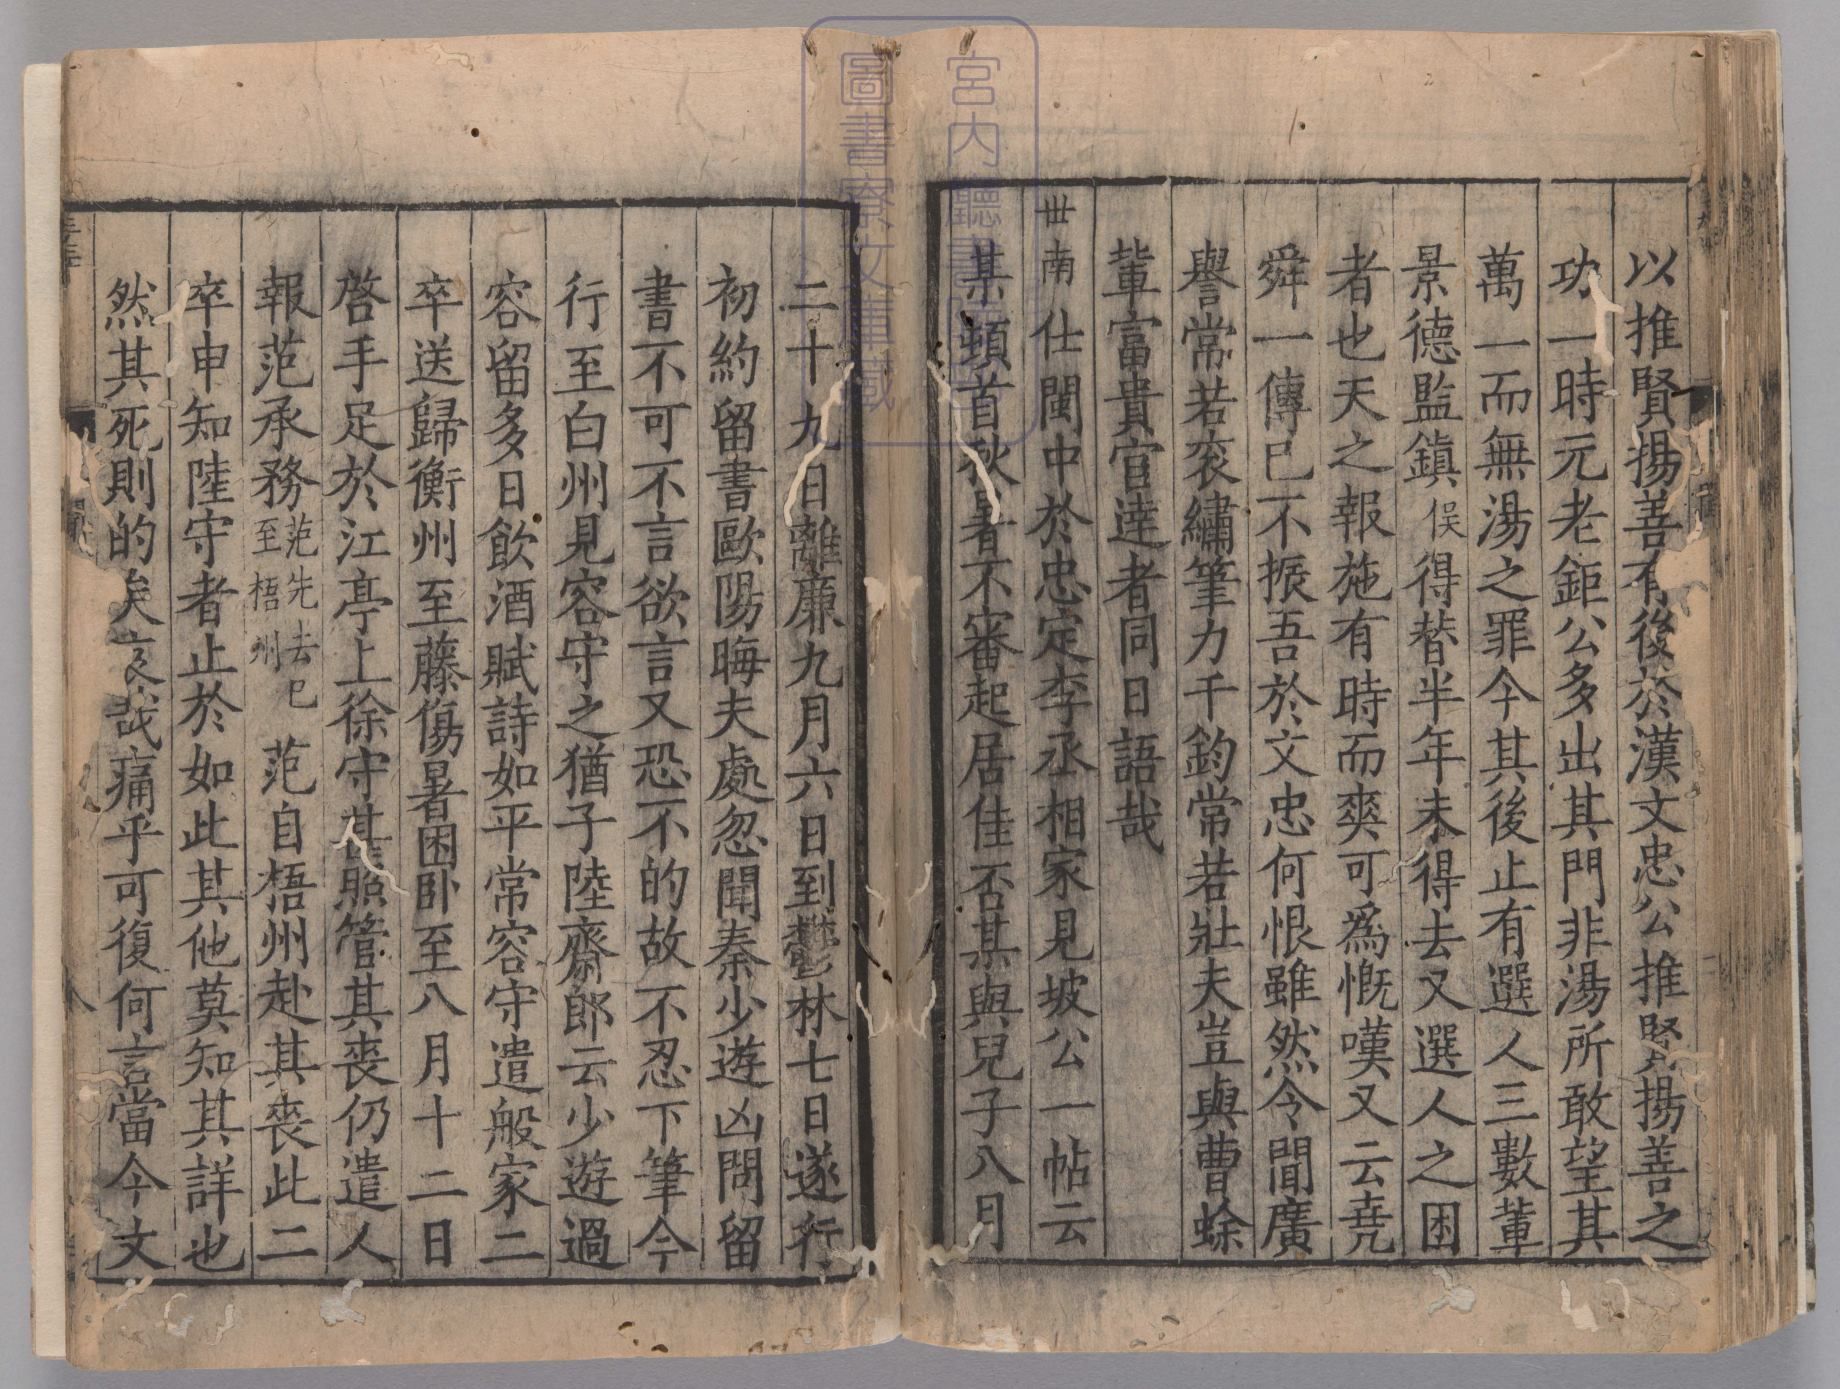 以推賢揚善有後於漢文忠公推賢揚善之
功一時元老鉅公多出其門非湯所敢望其
萬一而無湯之罪今其後止有選人三數輩
景德監鎮俟得替半年未得去又選人之困
者也天之報施有時而爽可爲慨嘆又云堯
舜一傳已不振吾於文忠何恨雖然令聞廣
譽常若衮繡筆力千鈞常若壯夫豈與曹蜍
輩富貴官達者同日語哉
世南仕閩中於忠定李丞相家見坡公一帖云
某頓首秋暑不審起居佳否某與兒子八月
二十九日離廉九月六日到鬱林七日遂行
初約留書歐陽晦夫處忽聞秦少遊凶問留
書不可不言欲言又恐不的故不忍下筆今
行至白州見容守之猶子陸齋郎云少遊過
容留多日飲酒賦詩如平常容守遣般家二
卒送歸衡州至藤傷暑困卧至八月十二日
啓手足於江亭上徐守甚照管其喪仍遣人
報范承務范先去已至梧州范自梧州赴其喪此二
卒申知陸守者止於如此其他莫知其詳也
然其死則的矣哀哉痛乎可復何言當今文
宮内廳書陵部
圖書寮文庫藏